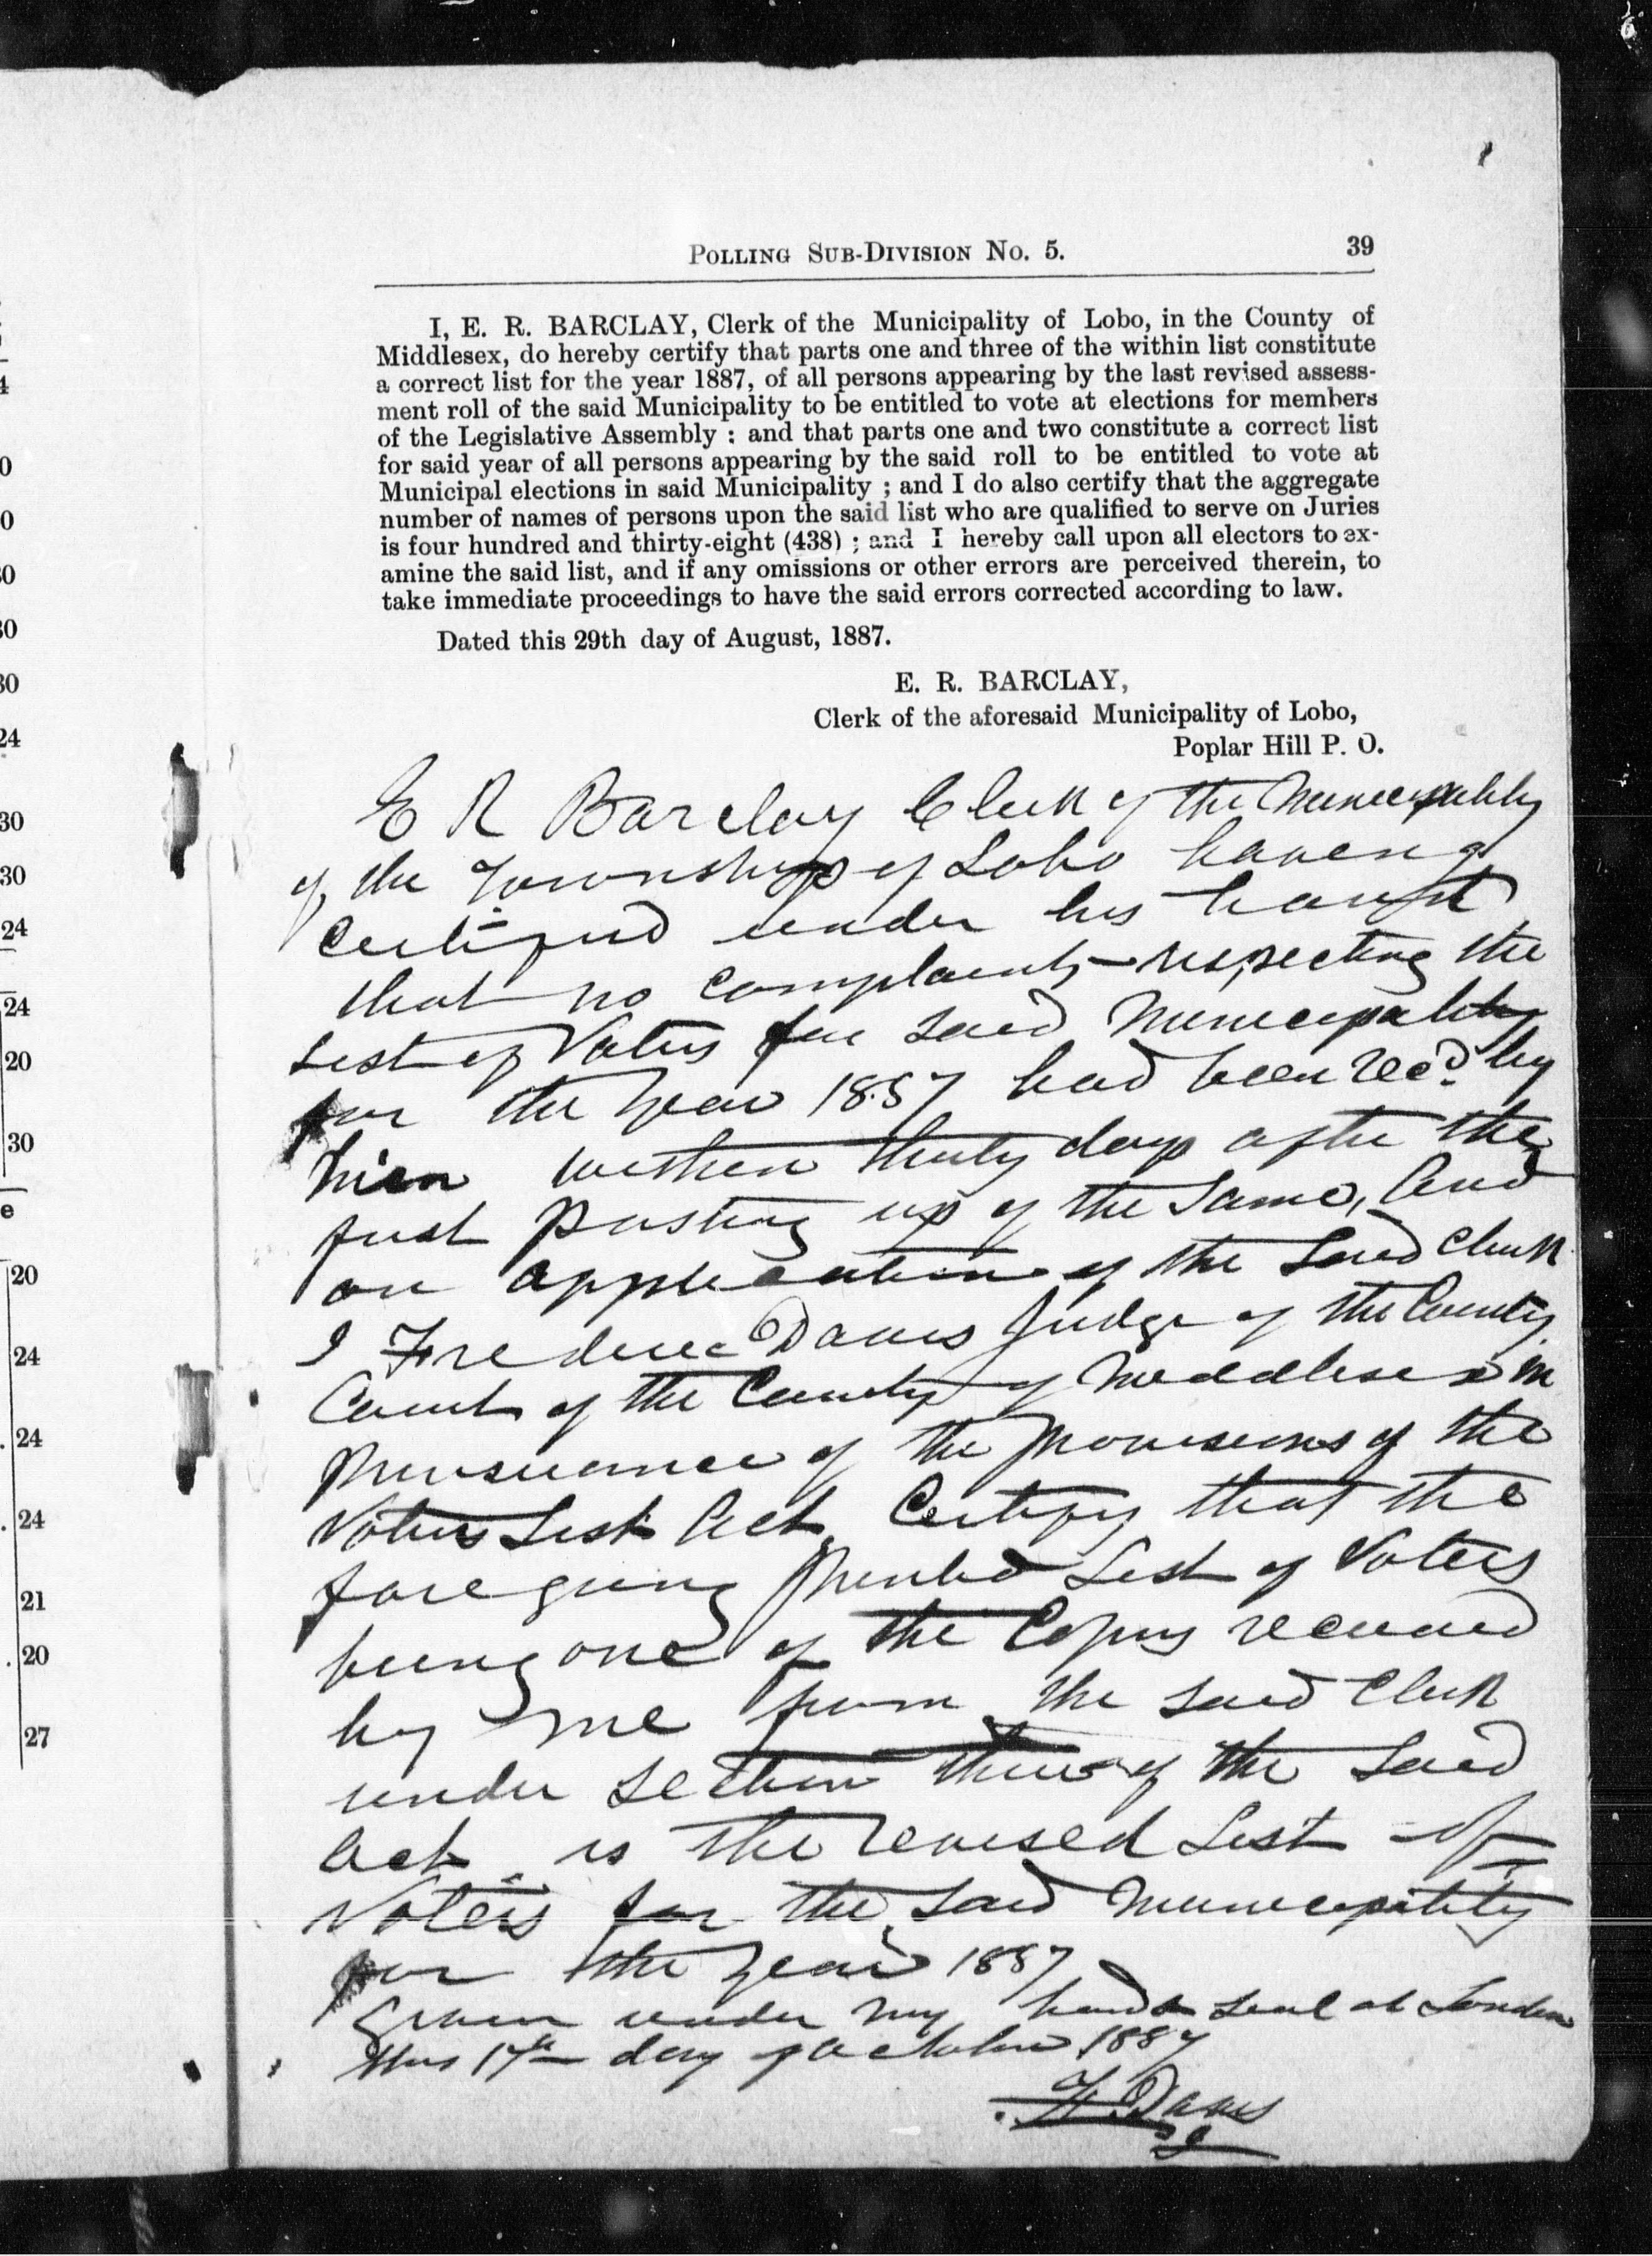 POLLING SUB-DIVISION NO. 5. 39
I, E. R. BARCLAY, Clerk of the Municipality of Lobo, in the County of
Middlesex, do hereby certify that parts one and three of the within list constitute
a correct list for the year 1887, of all persons appearing by the last revised assess-
ment roll of the said Municipality to be entitled to vote at elections for members
of the Legislative Assembly : and that parts one and two constitute a correct list
for said year of all persons appearing by the said roll to be entitled to vote at
Municipal elections in said Municipality ; and I do also certify that the aggregate
number of names of persons upon the said list who are qualified to serve on Juries
is four hundred and thirty-eight (438) ; and I hereby call upon all electors to ex-
amine the said list, and if any omissions or other errors are perceived therein, to
take immediate proceedings to have the said errors corrected according to law.
Dated this 29th day of August, 1887.
E. R. BARCLAY,
Clerk of the aforesaid Municipality of Lobo,
Poplar Hill P. O.
E R Barclay Clerk of the Municipality
of the Township of Lobo having
Certified under his hand
that no complaints respecting the
List of Voters for said Municipality
for the Year 1887 had been Rec'd by
him within thirty days after the
first posting up of the same, And
on application of the said Clerk
I Frederic Davis Judge of the County
Court of the County of Middlesex in
pursuance of the provisions of the
Voters List Act, Certify that the
foregoing printed List of Voters
being one of the Copies received
by me from the said Clerk
under section three of the said
Act, is the revised List of
Voters for the said Municipality
for the Year 1887
Given under my hand & seal at London
this 17th day of October 1887
F. Davis
J
4
0
0
30
30
24
30
30
24
24
20
30
e
20
24
24
24
21
20
27